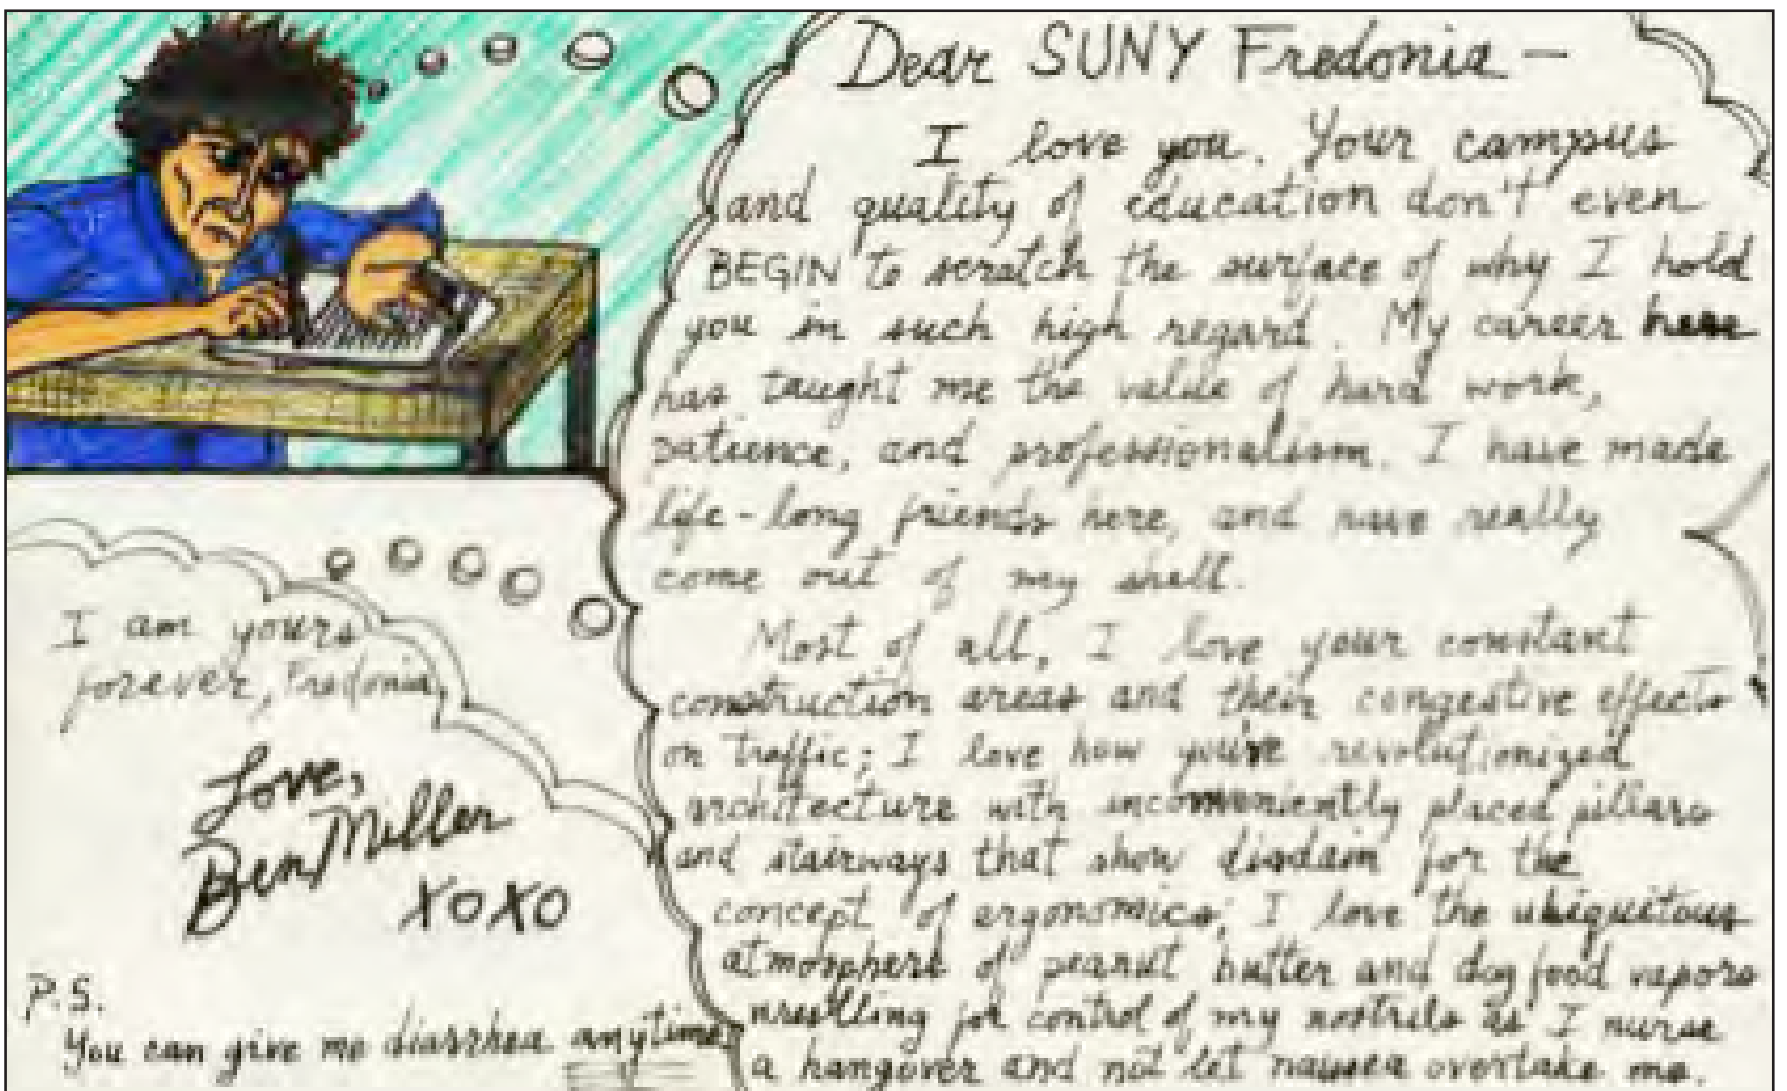 Dear SUNY Fredonia —
I love you. Your campus
and quality of education don't even
BEGIN to scratch the surface of why I hold
you in such high regard. My career here
has taught me the value of hard work,
patience, and professionalism. I have made
life-long friends here, and have really
come out of my shell.
Most of all, I love your constant
construction areas and their congestive effects
on traffic; I love how you've revolutionized
architecture with inconveniently placed pillars
and stairways that show disdain for the
concept of ergonomics; I love the ubiquitous
atmosphere of peanut butter and dog food vapors
wrestling for control of my nostrils as I nurse
a hangover and not let nausea overtake me.
I am yours
forever, Fredonia,
Love,
Ben Miller
XOXO
P.S.
You can give me diarrhea anytime.